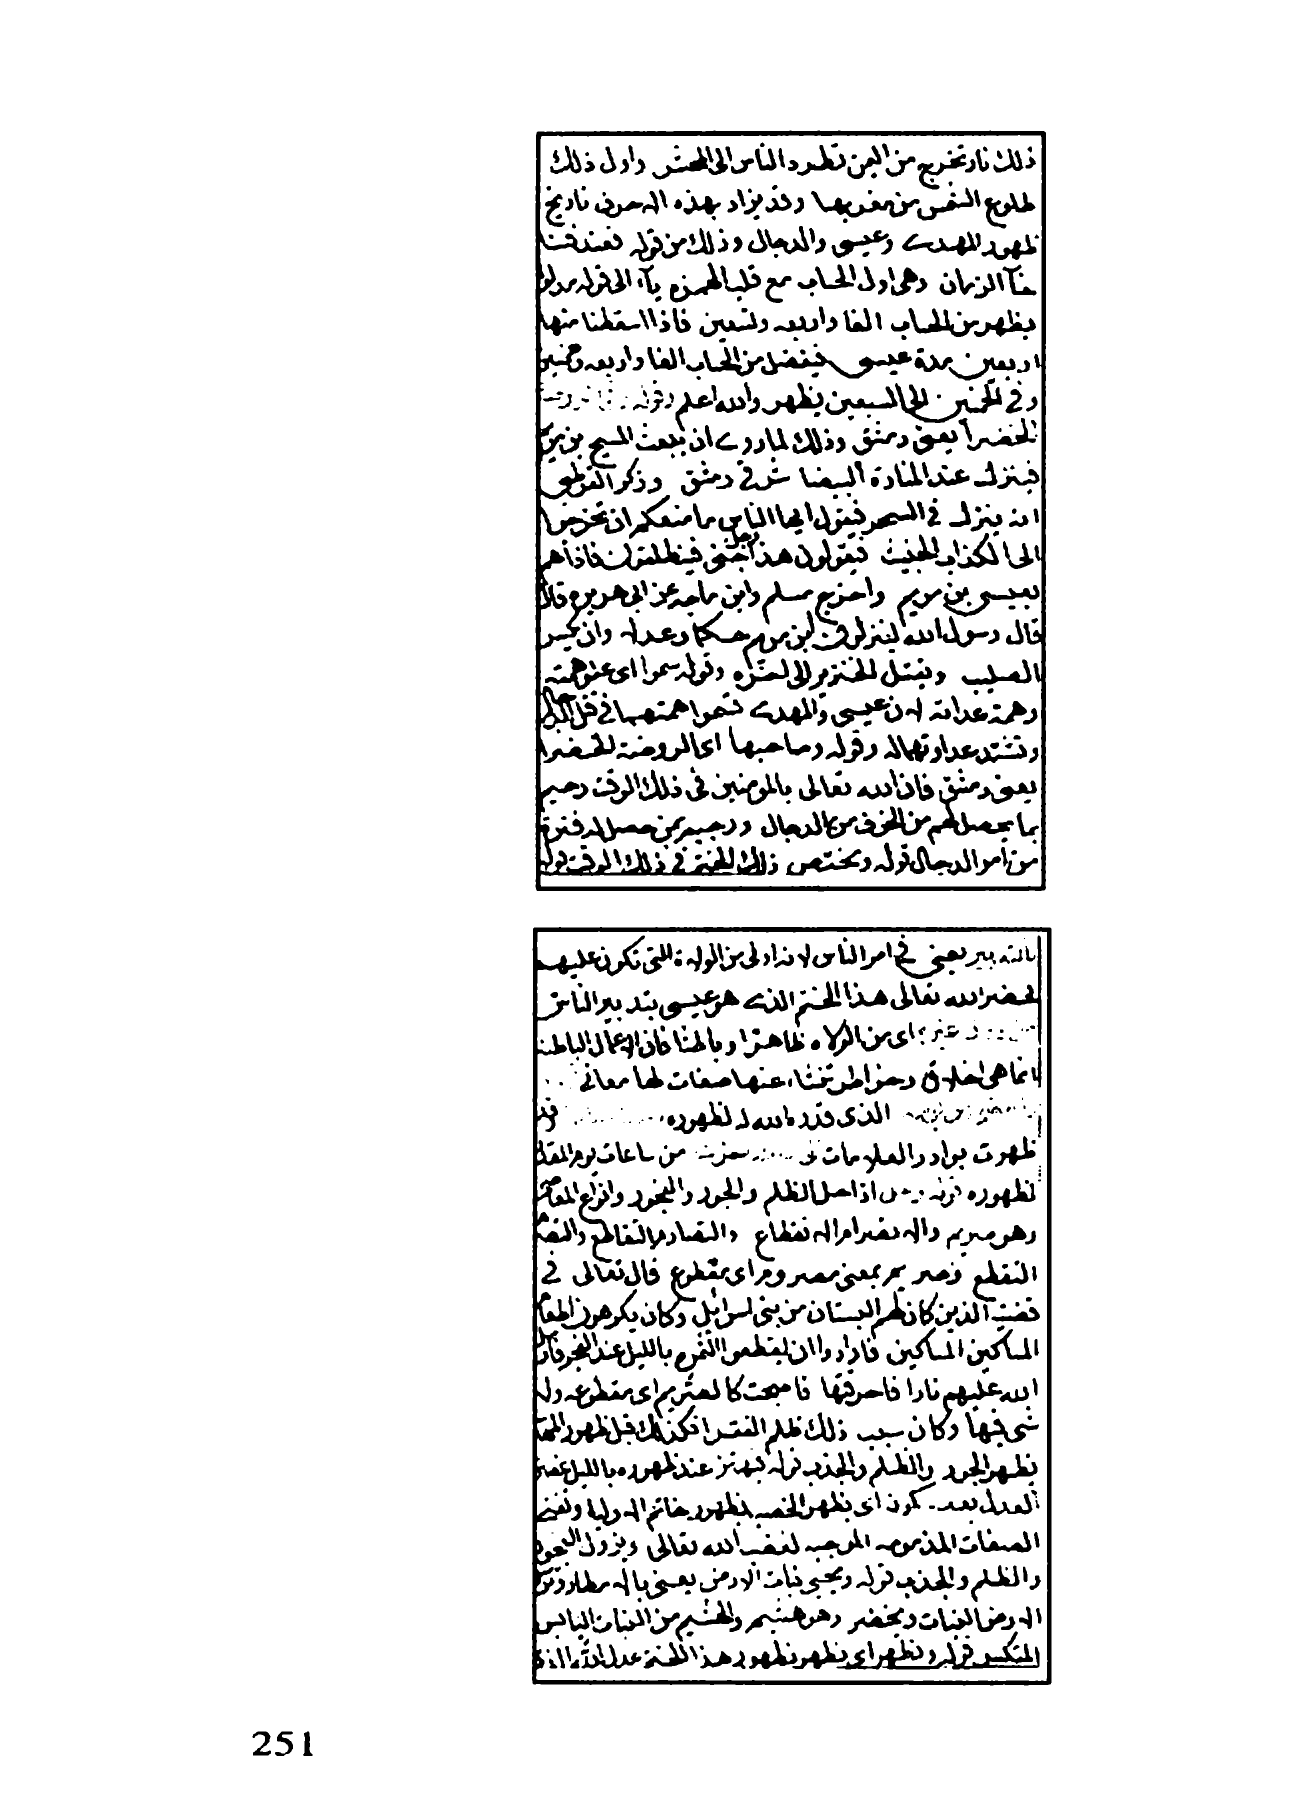 ذلك نار تخرج من اليمن تطرد الناس الى المحشر واول ذلك
طلوع الشمس من مغربها وقد يراد بهذه الاحرف تاريخ
ظهور المهدى وعيسى والدجال وذلك من قوله فعند فنا
خآ الزمان وهى اول الحساب مع قلب الهمزة يآء الى قوله مدلو
يظهر من الحساب الفا واربعه وتسعين فاذا اسقطنا منها
اربعين مدة عيسى فيفضل من الحساب الفا واربعه وخمسين
وفى الخمسين الى السبعين يظهر والله اعلم وقوله
الخضرآ يعنى دمشق وذلك لما روى ان يبعث المسيح بن مريم
فينزل عند المنارة البيضا شرقى دمشق وذكر القرطبى
انه ينزل فى السحر فيقول ايها الناس ما منعكم ان تخرجوا
الى الكذاب الخبيث فيقولون هذا رجل جنى فينطلقون فاذا هم
بعيسى بن مريم واخرج مسلم وابن ماجه عن ابى هريرة قال
قال رسول الله لينزلن ابن مريم حكما وعدلا وان يكسر
الصليب ويقتل الخنزير الى اخره وقوله سموا اى علو همته
وهمة عداته لان عيسى والمهدى تسموا همتهما فى قتل الدجال
وتشتد عداوتهما له وقوله وصاحبها اى الروضة الخضرا
يعنى دمشق فان الله تعالى بالمومنين فى ذلك الوقت رحيم
بما يحصل لهم من الخوف من الدجال ورحيم بمن حصل له فترة
من امر الدجال قوله ويختص ذلك الختم فى ذلك الوقت قوله
بالتدبير يعنى فى امر الناس لانه اولى من الولاة التى تكون عليهم
فيخص الله تعالى هذا الختم الذى هو عيسى بتدبير الناس
اى من الولاه ظاهرا وباطنا فان الاعمال الباطنه
انما هى اخلاق وخواطر تنشاء عنها صفات لها معانى
الذى قدره الله لظهوره وقد
ظهرت بوادر العلامات من ساعات يوم
لظهوره قوله اذا حصل الظلم والجور والفجور وانواع
وهو صريم والانصرام الانقطاع والتصارم التقاطع والتصرم
التقطع وصريم بمعنى مصروم اى مقطوع قال تعالى فى
قصة الذين كان لهم البستان من بنى اسرائيل وكان يكرهون اطعام
المساكين المساكين فارادوا ان يقطعوا الثمره بالليل عند الفجر فارسل
الله عليهم نارا فاحرقتها فاصبحت كالصريم اى مقطوعه ولا
شى فيها وكان سبب ذلك ظلم الفقرا فكذلك قبل ظهور
يظهر الجور والظلم والجذب قوله عند ظهوره بالليل
العدل بعد اى يظهر الخصب بظهور خاتم الاوليا
الصفات المذمومه الموجبه لغضب الله تعالى ويزول
والظلم والجذب قوله ويحيى نبات الارض يعنى بالامطار
الارض النبات ويخضر وهو هشيم والهشيم من النبات اليابس
المتكسر قوله ويظهر اى يظهر بظهور هذا الختم عدل الله الذى
251